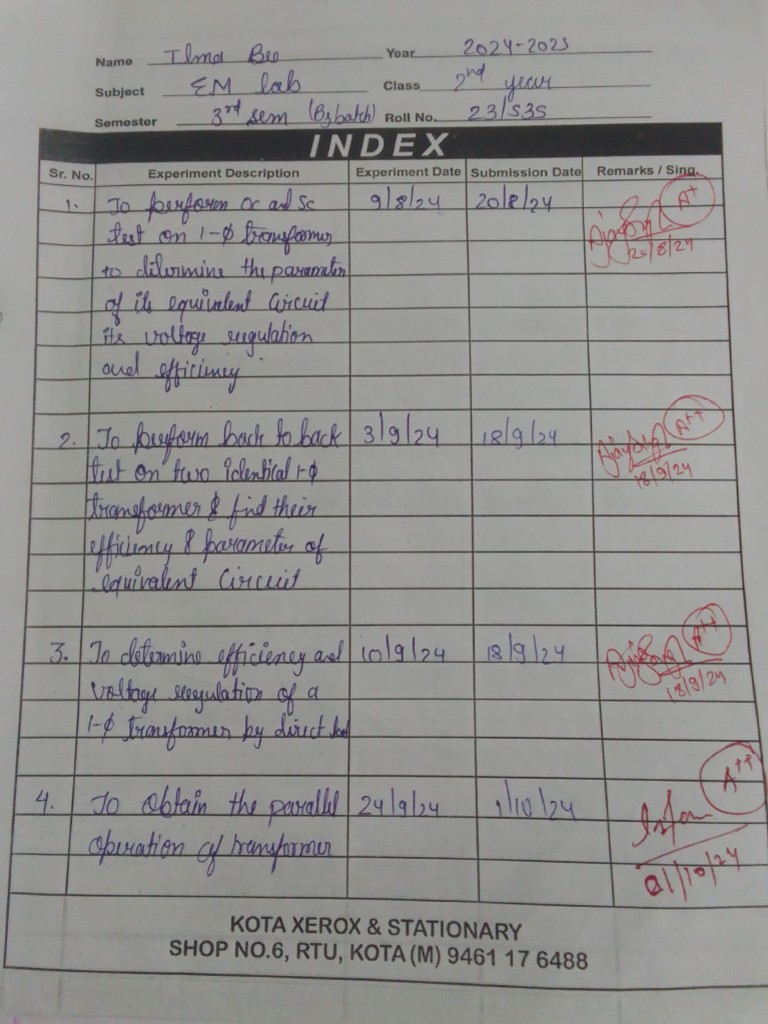 Name Ilma Bee Year 2024-2025
Subject EM lab Class 2nd year
Semester 3rd sem (B3 batch) Roll No. 23/535
INDEX
Sr. No. Experiment Description Experiment Date Submission Date Remarks / Sing.
1. To perform oc and sc 9/8/24 20/8/24 A+
test on 1-φ transformer
20/8/24
to ditermine the parameter
of its equivalent Circuit
its voltage regulation
and efficiency
2. To perform back to back 3/9/24 18/9/24 A++
test on two identical 1-φ
18/9/24
transformer & find their
efficiency & parameter of
equivalent Circuit
3. To determine efficiency and 10/9/24 18/9/24 A++
voltage regulation of a
18/9/24
1-φ transformer by direct
4. To obtain the parallel 24/9/24 1/10/24 A++
operation of transformer
01/10/24
KOTA XEROX & STATIONARY
SHOP NO.6, RTU, KOTA (M) 9461 17 6488